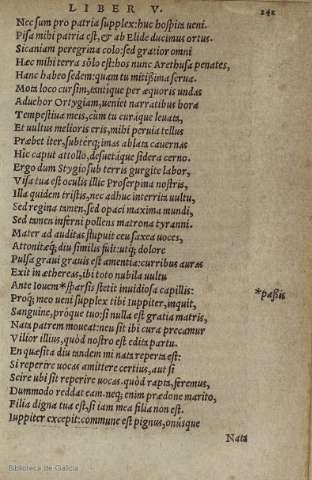 LIBER V. 242
Nec sum pro patria supplex: huc hospita veni.
Pisa mihi patria est, & ab Elide ducimus ortus.
Sicaniam peregrina colo: sed gratior omni
Hæc mihi terra solo est: hos nunc Arethusa penates,
Hanc habeo sedem: quam tu mitißima serua.
Mota loco cur sim, tantique per æquoris undas
Aduehor Ortygiam, ueniet narratibus hora
Tempestiua meis, cùm tu curáque leuata,
Et uultus melioris eris, mihi peruia tellus
Præbet iter, subterq; imas ablata cauernas
Hîc caput attollo, desuetáque sidera cerno.
Ergo dum Stygio sub terris gurgite labor,
Visa tua est oculis illic Proserpina nostris,
Illa quidem tristis, nec adhuc interrita uultu,
Sed regina tamen, sed opaci maxima mundi,
Sed tamen inferni pollens matrona tyranni.
Mater ad auditas stupuit ceu saxea uoces,
Attonitæq; diu similis fuit: utq; dolore
Pulsa graui grauis est amentia: curribus auras
Exit in æthereas, ibi toto nubila uultu
Ante Iouem *sparsis stetit inuidiosa capillis: *paßis
Proq; meo ueni supplex tibi Iuppiter, inquit,
Sanguine, próque tuo: si nulla est gratia matris,
Nata patrem moueat: neu sit tibi cura precamur
Vilior illius, quòd nostro est edita partu.
En quæsita diu tandem mi nata reperta est:
Si reperire uocas amittere certius, aut si
Scire ubi sit reperire uocas. quòd rapta, feremus,
Dummodo reddat eam. neq; enim prædone marito,
Filia digna tua est, si iam mea filia non est.
Iuppiter excepit: commune est pignus, onúsque
Nata
Biblioteca de Galicia